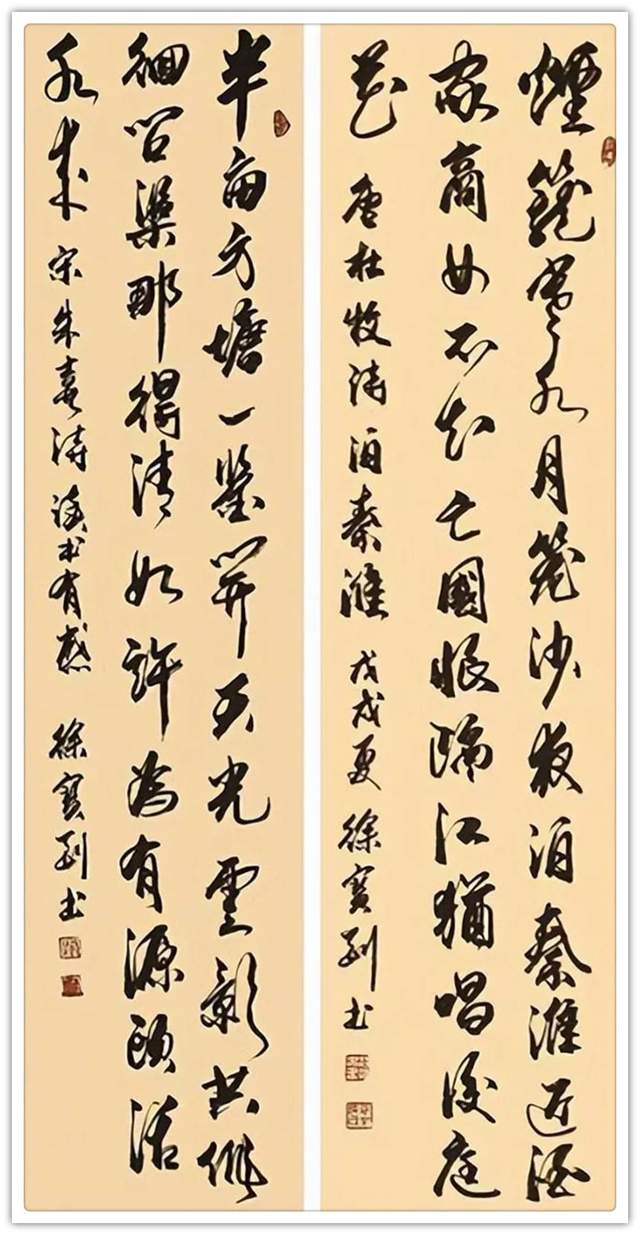 煙籠寒水月籠沙夜泊秦淮近酒
家商女不知亡國恨隔江猶唱後庭
花 唐杜牧詩泊秦淮 戊戌夏 徐寶书
半畝方塘一鑒開天光雲影共徘
徊問渠那得清如許為有源頭活
水来 宋朱熹詩讀书有感 徐寶书